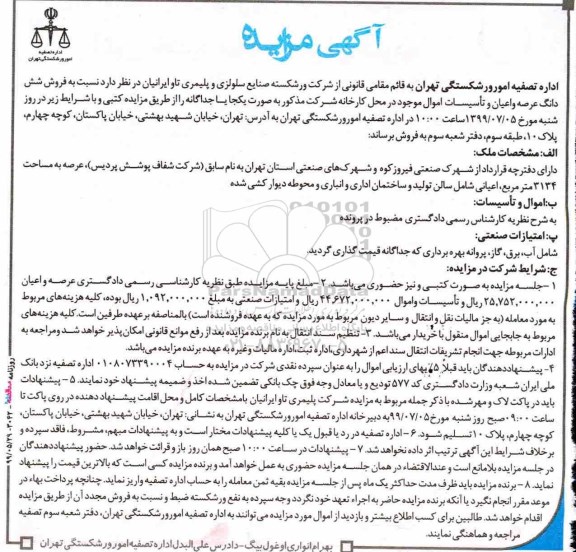 اداره تصفیه
امور ورشکستگی تهران
آگهی مزایده
اداره تصفیه امور ورشکستگی تهران به قائم مقامی قانونی از شرکت ورشکسته صنایع سلولزی و پلیمری تاو ایرانیان در نظر دارد نسبت به فروش شش
دانگ عرصه و اعیان و تأسیسات اموال موجود در محل کارخانه شرکت مذکور به صورت یکجا یا جداگانه را از طریق مزایده کتبی و با شرایط زیر در روز
شنبه مورخ ۱۳۹۹/۰۷/۰۵ ساعت ۱۰:۰۰ در اداره تصفیه امور ورشکستگی تهران به آدرس: تهران، خیابان شهید بهشتی، خیابان پاکستان، کوچه چهارم،
پلاک ۱۰، طبقه سوم، دفتر شعبه سوم به فروش برساند:
الف: مشخصات ملک:
دارای دفترچه قرارداد از شهرک صنعتی فیروزکوه و شهرک‌های صنعتی استان تهران به نام سابق (شرکت شفاف پوشش پردیس)، عرصه به مساحت
۳۱۳۴ متر مربع، اعیانی شامل سالن تولید و ساختمان اداری و انباری و محوطه دیوار کشی شده
ب: اموال و تأسیسات:
به شرح نظریه کارشناس رسمی دادگستری مضبوط در پرونده
پ: امتیازات صنعتی:
شامل آب، برق، گاز، پروانه بهره برداری که جداگانه قیمت گذاری گردید.
ج: شرایط شرکت در مزایده:
۱- جلسه مزایده به صورت کتبی و نیز حضوری می‌باشد. ۲- مبلغ پایه مزایده طبق نظریه کارشناسی رسمی دادگستری عرصه و اعیان
۲۵,۷۵۲,۰۰۰,۰۰۰ ریال و تأسیسات و اموال ۴۴,۶۷۲,۰۰۰,۰۰۰ ریال و امتیازات صنعتی به مبلغ ۱,۰۹۲,۰۰۰,۰۰۰ ریال بوده، کلیه هزینه‌های مربوط
به مورد معامله (به جز مالیات نقل و انتقال و سایر دیون مربوط به مورد مزایده که به عهده فروشنده است) بالمناصفه بر عهده طرفین است. کلیه هزینه‌های
مربوط به جابجایی اموال منقول با خریدار می‌باشد. ۳- تنظیم سند انتقال به نام برنده مزایده بعد از رفع موانع قانونی امکان پذیر خواهد شد و مراجعه به
ادارات مربوطه جهت انجام تشریفات انتقال سند اعم از شهرداری، اداره ثبت، اداره مالیات و غیره به عهده برنده مزایده می‌باشد.
۴- پیشنهاددهندگان باید قبلا ٪۵ بهای ارزیابی اموال را به عنوان سپرده نقدی شرکت در مزایده به حساب ۰۱۰۸۰۷۳۳۹۰۰۰۴ اداره تصفیه نزد بانک
ملی ایران شعبه وزارت دادگستری کد ۵۷۷ تودیع و یا معادل وجه فوق چک بانکی تضمین شده اخذ و ضمیمه پیشنهاد خود نمایند. ۵- پیشنهادات
باید در پاکت لاک و مهر شده با ذکر جمله مربوط به مزایده شرکت پلیمری تاو ایرانیان با مشخصات کامل و محل اقامت پیشنهاد دهنده در روی پاکت تا
ساعت ۰۹:۰۰ صبح روز شنبه مورخ ۹۹/۰۷/۰۵ به دبیرخانه اداره تصفیه امور ورشکستگی تهران به نشانی: تهران، خیابان شهید بهشتی، خیابان پاکستان،
کوچه چهارم، پلاک ۱۰ تسلیم شود. ۶- اداره تصفیه در رد یا قبول یک یا کلیه پیشنهادات مختار است و به پیشنهادات مبهم، مشروط، فاقد سپرده و
بر خلاف شرایط این آگهی ترتیب اثر داده نخواهد شد. ۷- پیشنهادات در ساعت ۱۰:۰۰ صبح همان روز باز و قرائت خواهد شد. حضور پیشنهاددهندگان
در جلسه مزایده بلامانع است و عندالاقتضاء در همان جلسه مزایده حضوری به عمل خواهد آمد و برنده مزایده کسی است که بالاترین قیمت را پیشنهاد
نماید. ۸- برنده مزایده باید ظرف مدت حداکثر یک ماه پس از جلسه مزایده بقیه ثمن معامله را به حساب اداره تصفیه واریز نماید. چنانچه پرداخت بهاء در
موعد مقرر انجام نگیرد یا آنکه برنده مزایده حاضر به اجراء تعهد خود نگردد وجه سپرده به نفع ورشکسته ضبط و نسبت به فروش مجدد آن از طریق مزایده
اقدام خواهد شد. طالبین برای کسب اطلاع بیشتر و بازدید از اموال مورد مزایده می‌توانند به اداره تصفیه امور ورشکستگی تهران، دفتر شعبه سوم تصفیه
مراجعه و هماهنگی نمایند.
بهرام انواری اوغول بیگ - دادرس علی البدل اداره تصفیه امور ورشکستگی تهران